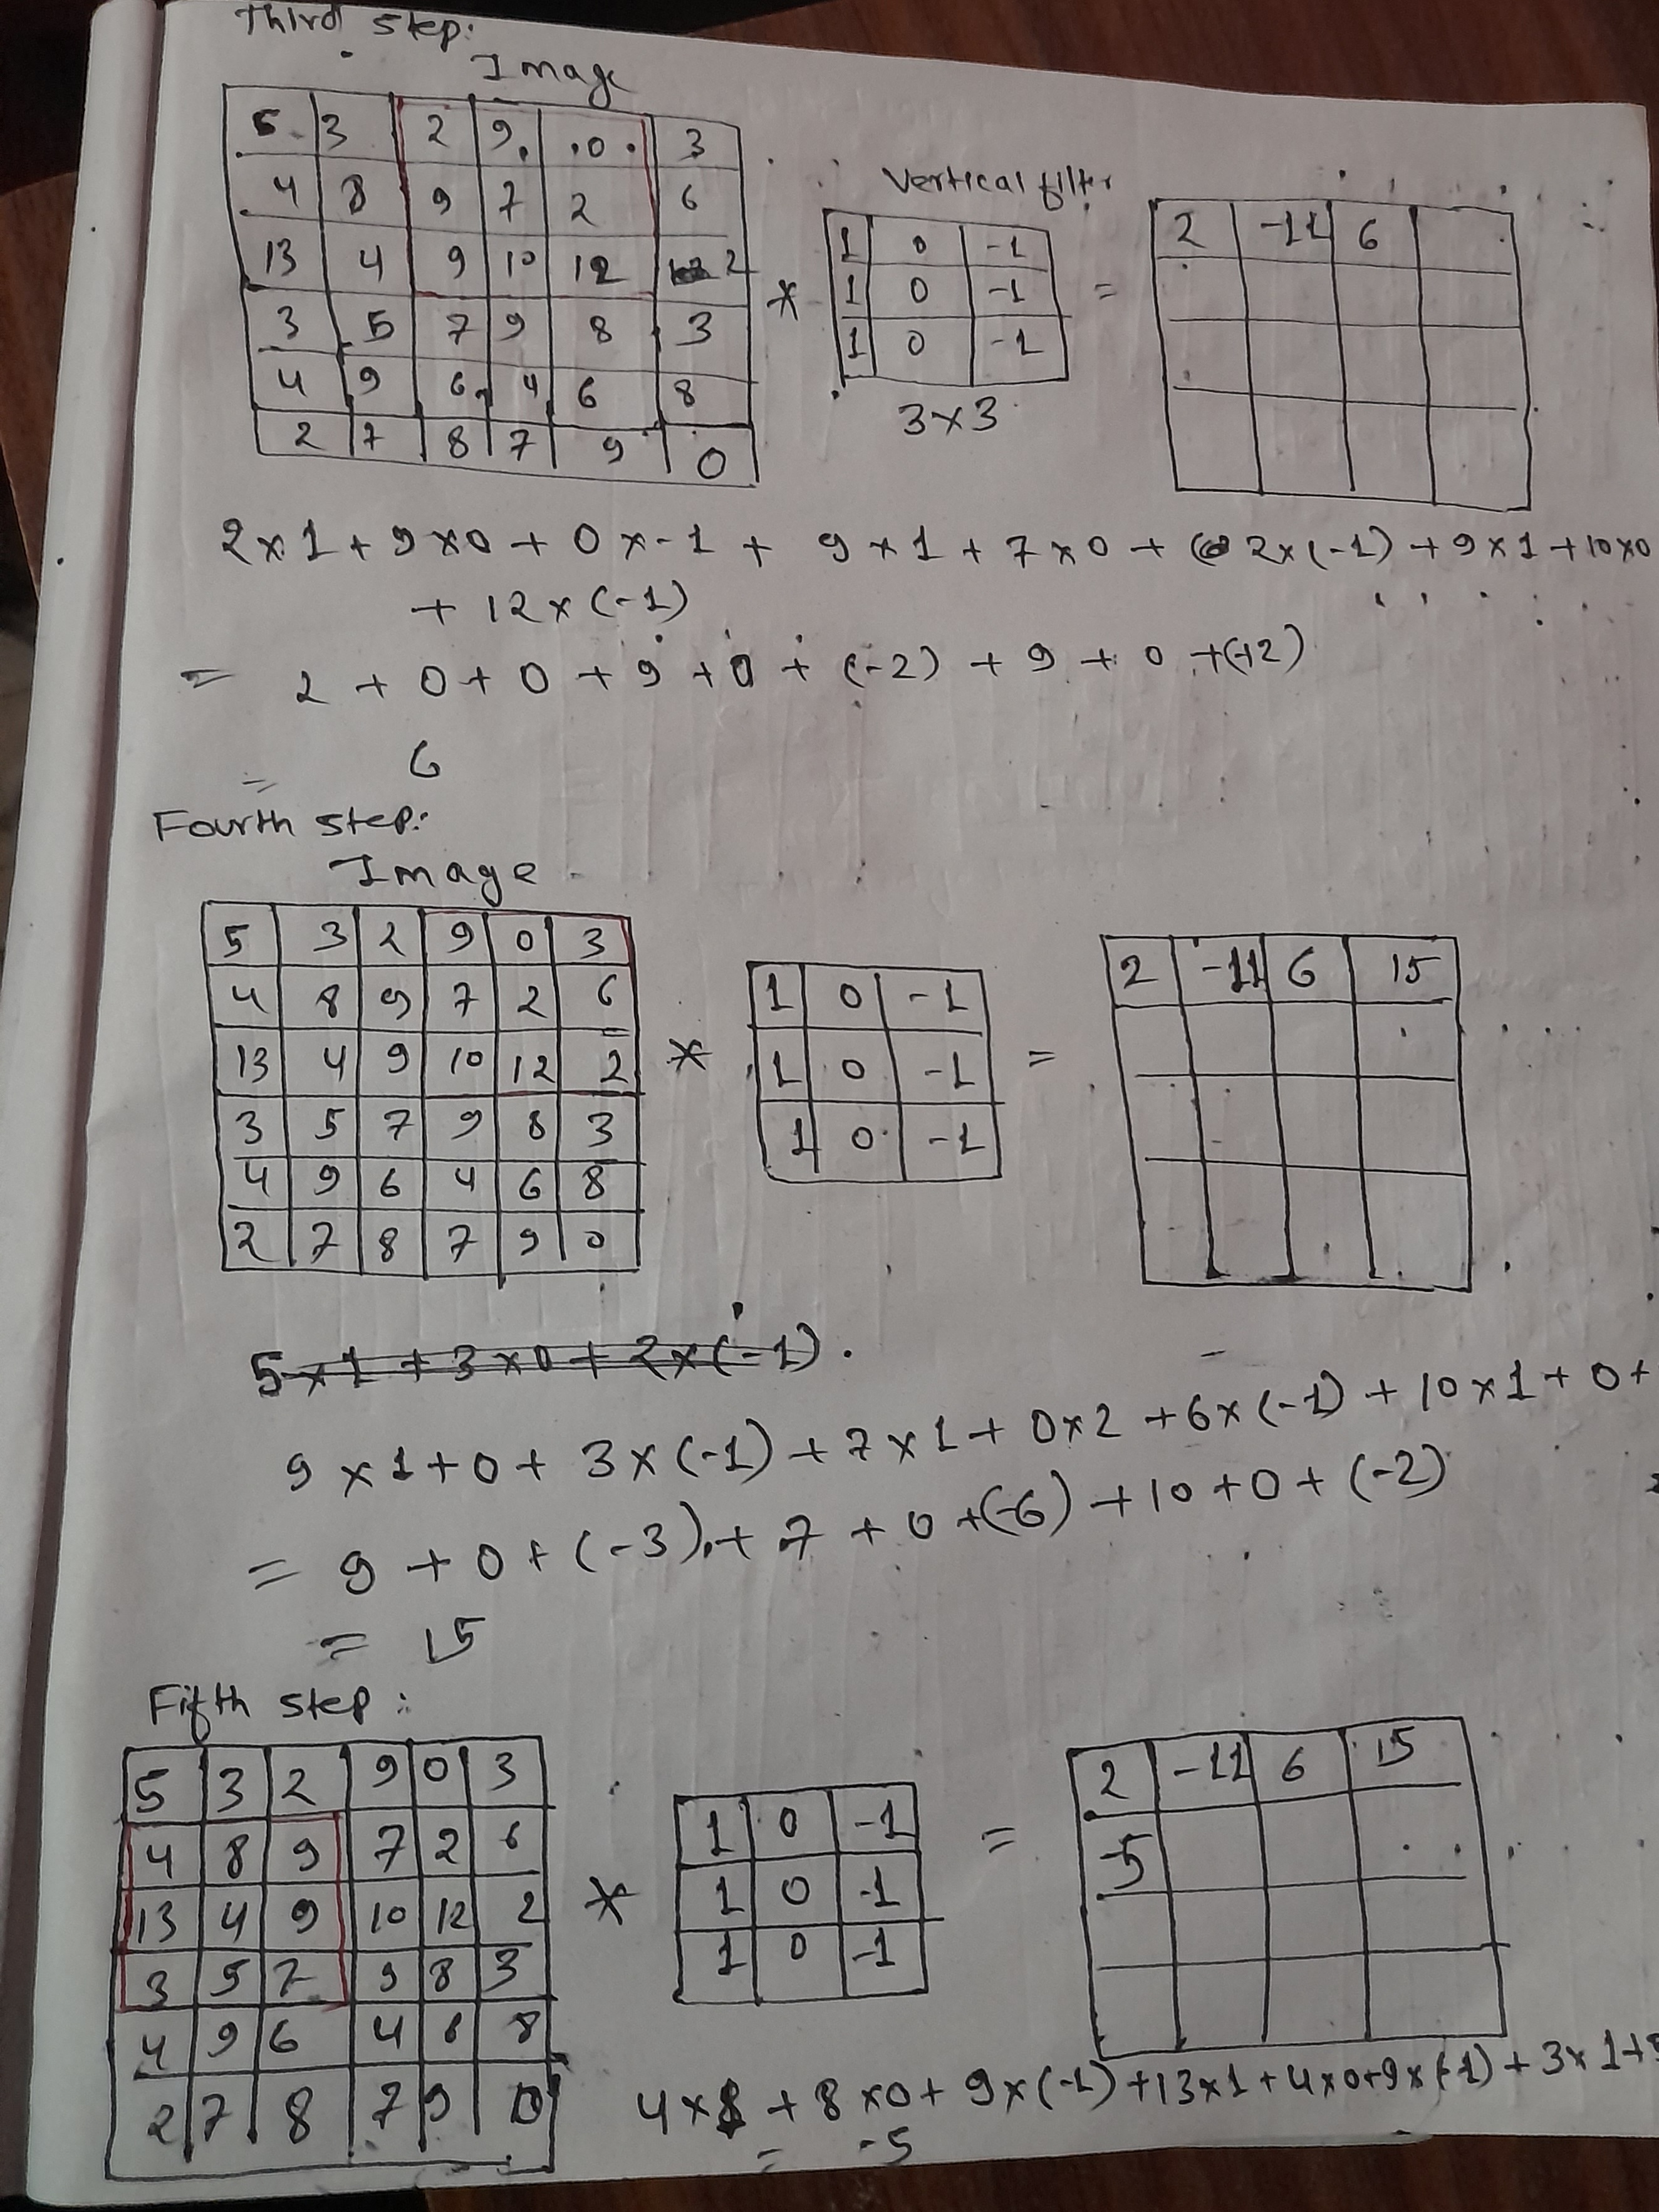 Third step:
Image
5 3 2 9 0 3
4 8 9 7 2 6
13 4 9 10 12 2
3 5 7 9 8 3
4 9 6 4 6 8
2 7 8 7 9 0
*
Vertical filter
1 0 -1
1 0 -1
1 0 -1
3x3
=
2 -11 6
2x1+9x0+0x-1+ 9x1+7x0+(2x(-1)+9x1+10x0
+12x(-1)
= 2+0+0+9+0+(-2)+9+0+(-12)
= 6
Fourth step:
Image
5 3 2 9 0 3
4 8 9 7 2 6
13 4 9 10 12 2
3 5 7 9 8 3
4 9 6 4 6 8
2 7 8 7 9 0
*
1 0 -1
1 0 -1
1 0 -1
=
2 -11 6 15
5x1+3x0+2x(-1).
9x1+0+3x(-1)+7x1+0x2+6x(-1)+10x1+0+
= 9+0+(-3)+7+0+(-6)+10+0+(-2)
= 15
Fifth step:
5 3 2 9 0 3
4 8 9 7 2 6
13 4 9 10 12 2
3 5 7 9 8 3
4 9 6 4 6 8
2 7 8 7 9 0
*
1 0 -1
1 0 -1
1 0 -1
=
2 -11 6 15
-5
4x1+8x0+9x(-1)+13x1+4x0+9x(-1)+3x1+
= -5